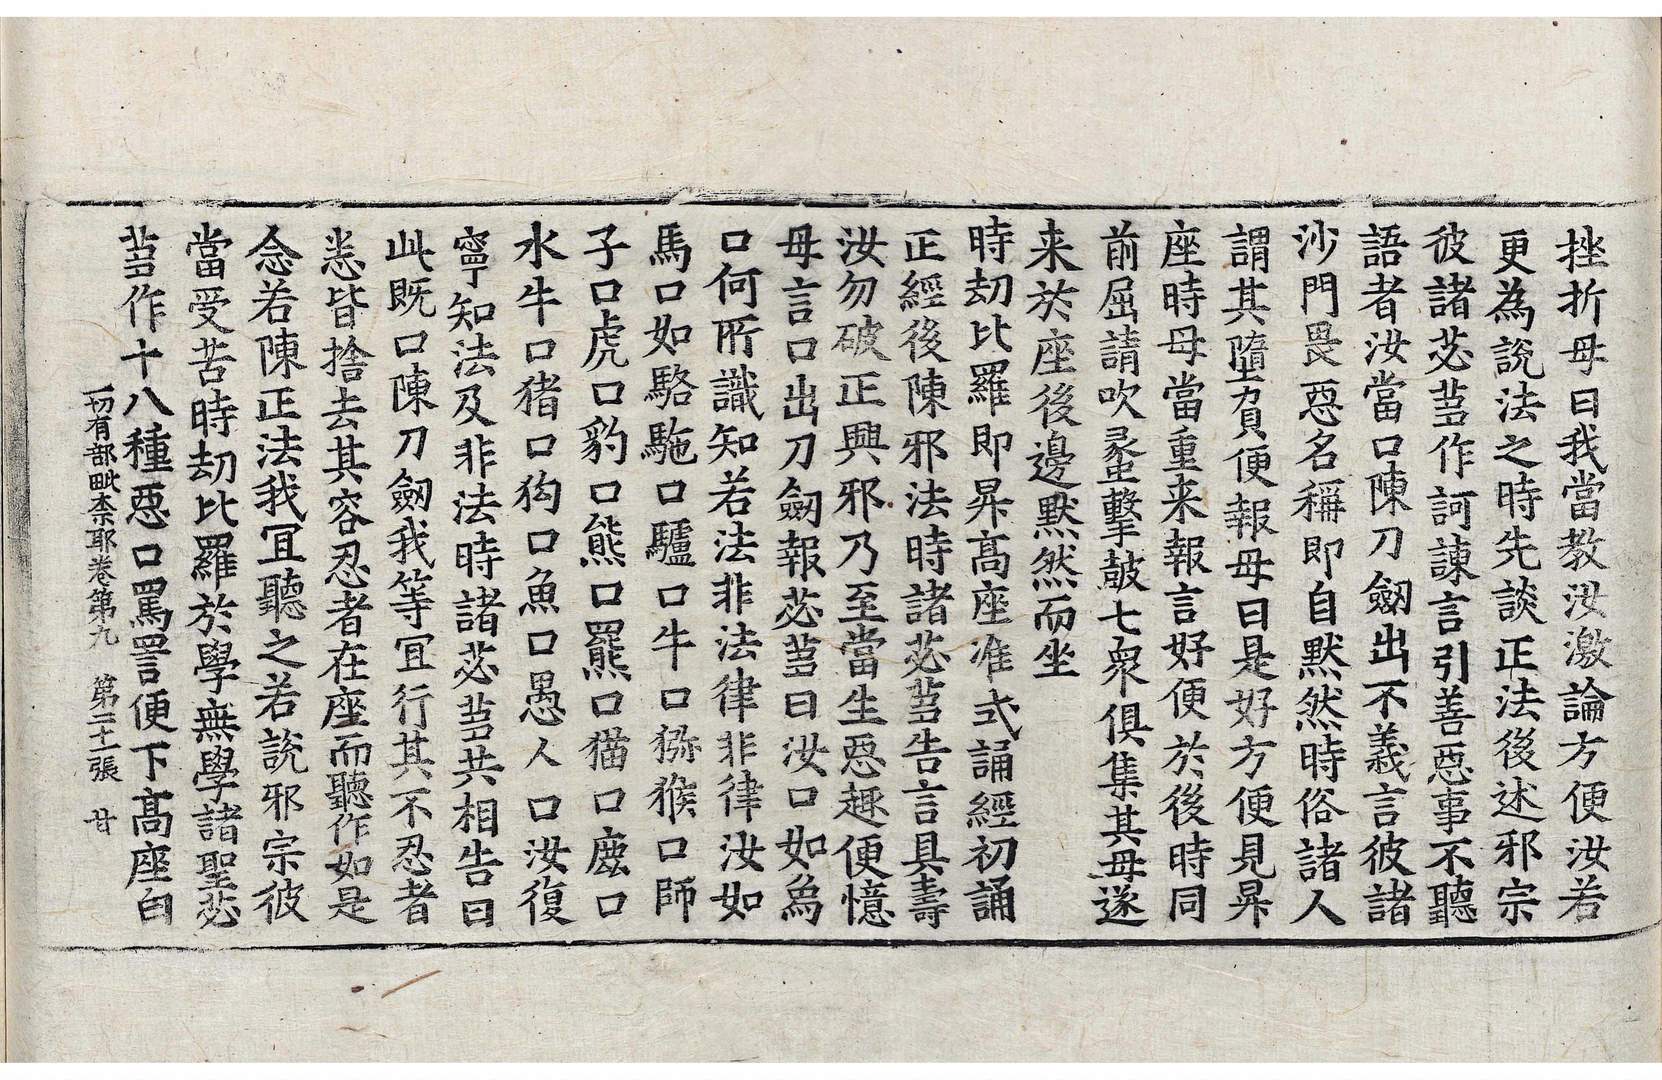 挫折母曰我當教汝激論方便汝若
更為說法之時先談正法後述邪宗
彼諸苾蒭作訶諫言引善惡事不聽
語者汝當口陳刀劒出不義言彼諸
沙門畏惡名稱即自默然時俗諸人
謂其墮負便報母曰是好方便見昇
座時母當重来報言好便於後時同
前屈請吹䗍擊皷七衆俱集其母遂
来於座後邊默然而坐
時劫比羅即昇高座准式誦經初誦
正經後陳邪法時諸苾蒭告言具壽
汝勿破正興邪乃至當生惡趣便憶
母言口出刀劒報苾蒭曰汝口如為
口何所識知若法非法律非律汝如
馬口如駱駞口驢口牛口獼猴口師
子口虎口豹口熊口羆口猫口鹿口
水牛口猪口狗口魚口愚人口汝復
寧知法及非法時諸苾蒭共相告曰
此既口陳刀劒我等宜行其不忍者
悉皆捨去其容忍者在座而聽作如是
念若陳正法我宜聽之若說邪宗彼
當受苦時劫比羅於學無學諸聖苾
蒭作十八種惡口罵詈便下高座白
一切有部毗柰耶卷第九 第二十一張 甘